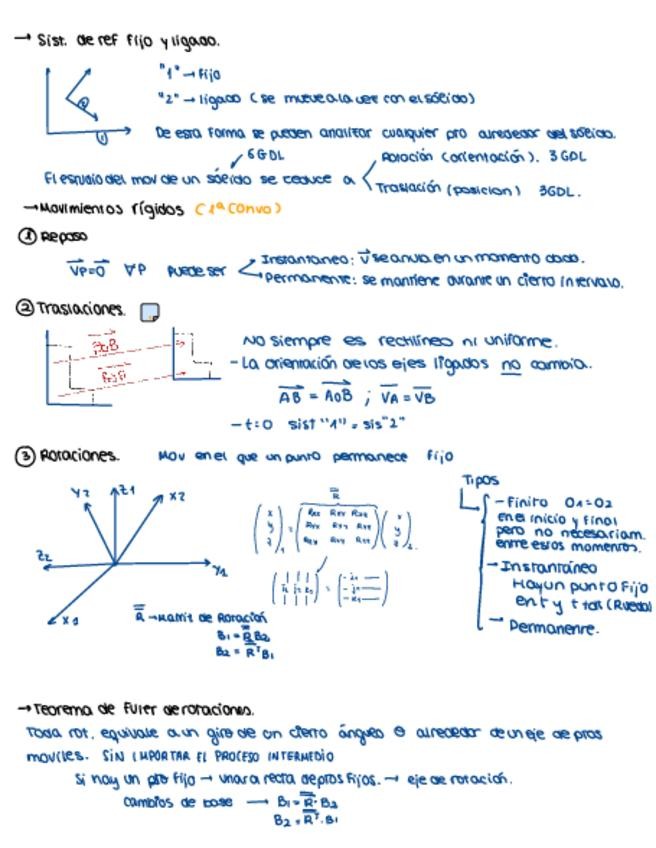 → Sist. de ref fijo y ligado.
"1" → Fijo
"2" → ligado (se mueve a la vez con el sólido)
2
1
De esta forma se pueden analizar cualquier pto alrededor del sólido.
6GDL
Rotación (orientación). 3 GDL
El estudio del mov de un sólido se reduce a
Traslación (posicion) 3GDL.
→ Movimientos rígidos (1ª Convo)
① Reposo
Instantaneo: V se anula en un momento dado.
VP=0 ∀P puede ser
Permanente: se mantiene durante un cierto intervalo.
② Traslaciones.
No siempre es rectilíneo ni uniforme.
- La orientación de los ejes ligados no cambia.
AB = A0B ; VA = VB
- t=0 sist "1" = sis "2"
③ Rotaciones. Mov en el que un punto permanece fijo
Tipos
Y2 Z1 X2
Z2 Y1
X1
R
x y z 1 = Rxx Rxy Rxz Ryx Ryy Ryz Rzx Rzy Rzz x y z 2
- Finito O1=O2
en el inicio y final
pero no necesariam.
entre estos momentos.
- Instantáneo
Hay un punto fijo
en t y t+dt (Rueda)
- Permanente.
R → Matriz de Rotación
B1 = R B2
B2 = Rᵀ B1
→ Teorema de Euler de rotaciones.
Toda rot. equivale a un giro de un cierto ángulo θ alrededor de un eje de ptos
moviles. SIN IMPORTAR EL PROCESO INTERMEDIO
Si hay un pto fijo → una recta de ptos fijos. → eje de rotación.
Cambios de base → B1 = R · B2
B2 = Rᵀ · B1